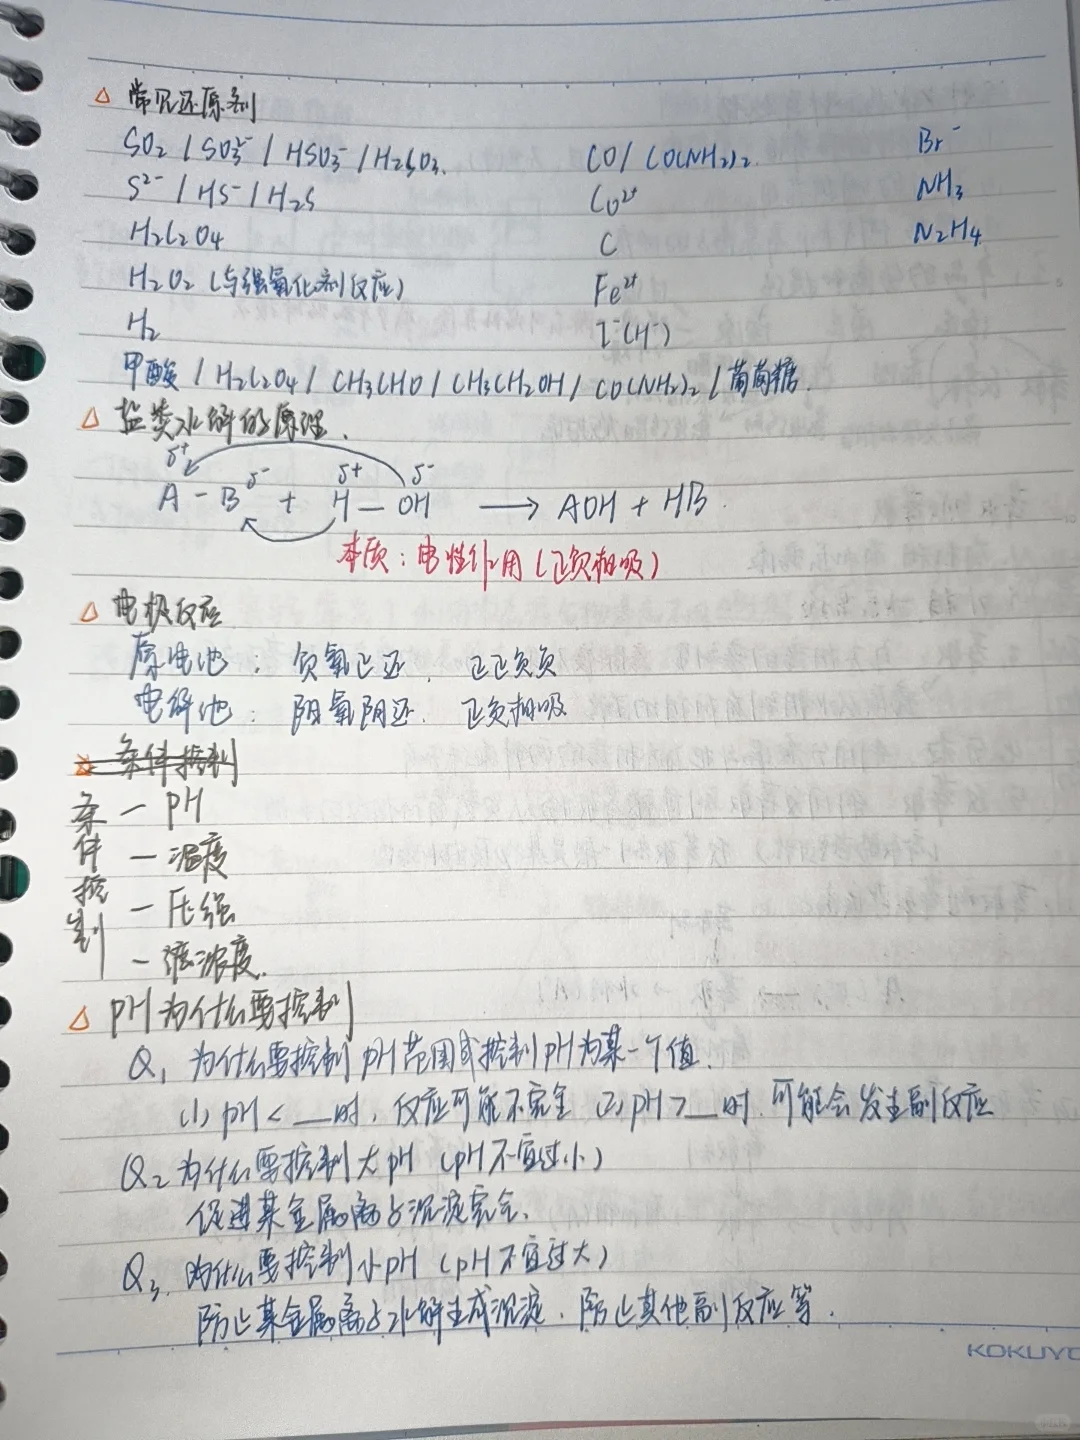 △ 常见还原剂
SO₂ / SO₃²⁻ / HSO₃⁻ / H₂SO₃. CO / CO(NH₂)₂. Br⁻
S²⁻ / HS⁻ / H₂S Co²⁺ NH₃
H₂C₂O₄ C N₂H₄
H₂O₂ (与强氧化剂反应) Fe²⁺
H₂ I⁻(H⁻)
甲酸 / H₂C₂O₄ / CH₃CHO / CH₃CH₂OH / CO(NH₂)₂ / 葡萄糖.
△ 盐类水解的原理.
δ+ δ- δ+ δ-
A - B + H — OH ⟶ AOH + HB.
本质：电性作用 (正负相吸)
△ 电极反应
原电池： 负氧正还. 正正负负
电解池： 阳氧阴还. 正负相吸
条件控制
条件控制
— pH
— 温度
— 压强
— 浓度.
△ pH为什么要控制
Q₁ 为什么要控制pH范围或控制pH为某一个值.
(1) pH < __时, 反应可能不完全 (2) pH > __时. 可能会发生副反应
Q₂ 为什么要控制大pH (pH不宜过小)
促进某金属离子沉淀完全.
Q₃. 为什么要控制小pH (pH不宜过大)
防止某金属离子水解生成沉淀. 防止其他副反应等.
KOKUYO